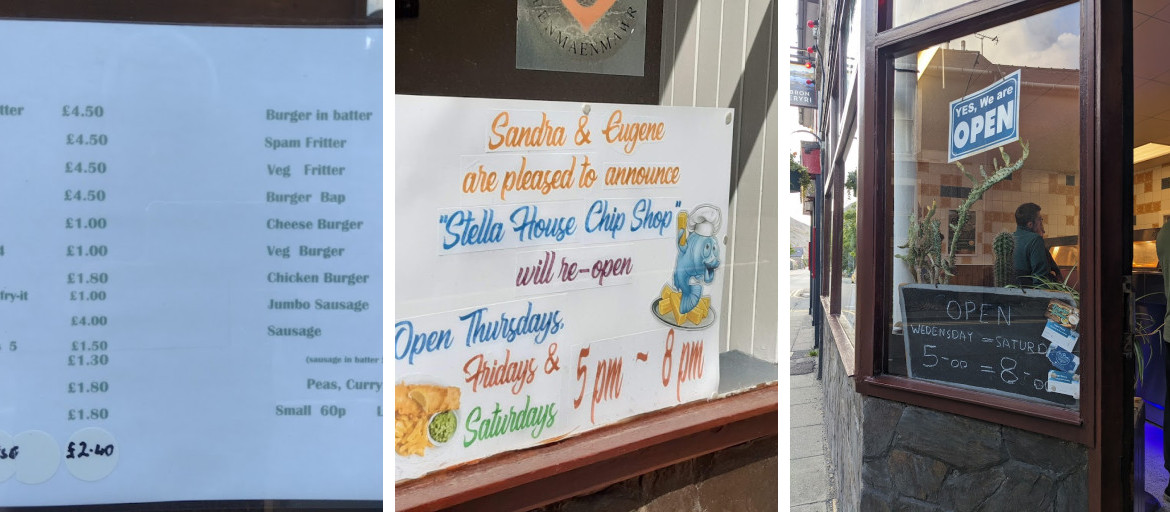 tter £4.50 Burger in batter
£4.50 Spam Fritter
£4.50 Veg Fritter
£4.50 Burger Bap
£1.00 Cheese Burger
£1.00 Veg Burger
£1.80 Chicken Burger
fry-it £1.00 Jumbo Sausage
£4.00 Sausage
5 £1.50
£1.30 (sausage in batter
£1.80 Peas, Curry
£1.80 Small 60p
£2.40
PENMAENMAWR
Sandra & Eugene
are pleased to announce
"Stella House Chip Shop"
will re-open
Open Thursdays,
Fridays &
Saturdays
5pm ~ 8pm
YES, We are
OPEN
OPEN
WEDENSDAY = SATURD
5-00 = 8-00